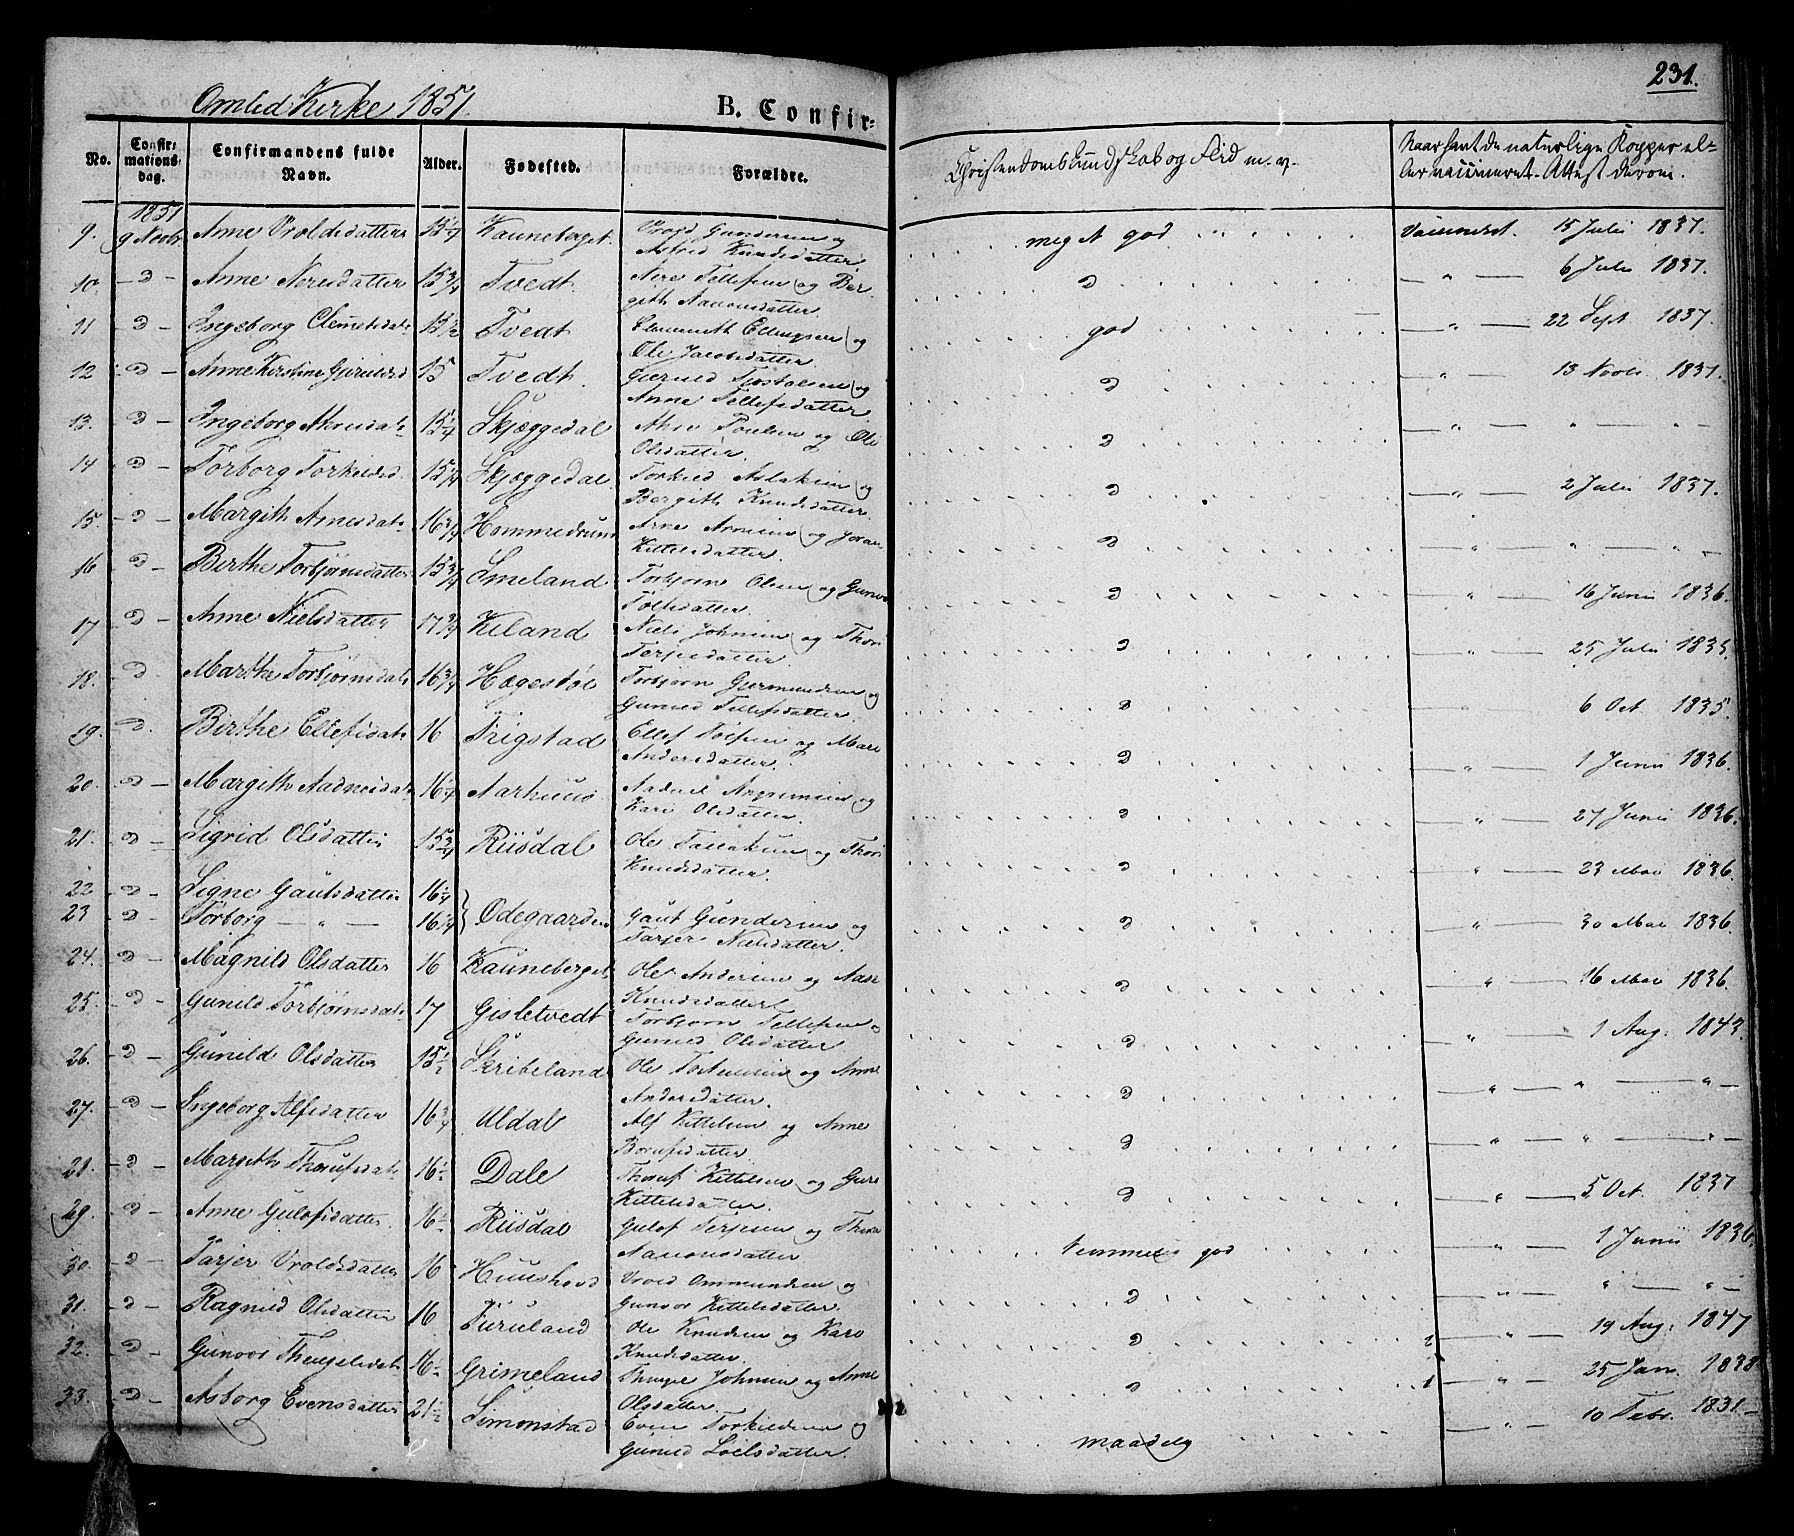 231.
Omlid Kirke 1851.
B. Confir-
No.
Confir-
mations-
dag.
Confirmandens fulde
Navn.
Alder.
Fødested.
Forældre.
Christendomskundskab og Flid m. v.
Naar havt de naturlige Kopper el-
ler vaccineret - Attest derom.
1851
9. 9 Novbr. Anne Vroldsdatter 15 1/4 Kauneberget. Vrold Gundersen og
Astrid Knudsdatter. meget god Vaccineret. 15 Julii 1837.
10. -d- Anne Neresdatter 15 3/4 Tvedt. Nere Tellefsen og Ber-
gith Aanonsdatter. d — " — 6 Julii 1837.
11 -d- Ingeborg Clemetsdatr 15 1/2 Tvedt Clemmeth Ellingsen og
Ole Jacobsdatter. god — " — 22 Sept 1837.
12 -d- Anne Kirstine Gjerulds d 15 Tvedt. Gieruld Tjostolsen og
Anne Tellefsdatter. d — " — 13 Novbr. 1837.
13. -d- Ingeborg Akresdatr 15 1/4 Skjæggedal Akre Poulsen og Oli
Olsdatter. d — " — " — " —
14 -d- Torborg Torkildsd. 15 1/4 Skjæggedal. Torkild Aslaksen og
Bergith Knudsdatter. d — " — 2 Julii 1837.
15. -d- Margith Arnesdatr 16 3/4 Hommedrum Arne Arnesen og Joran
Kittelsdatter. d — " — " — " —
16 -d- Birthe Torbjørnsdatter 15 3/4 Smeland Torbjørn Olsen og Gunvor
Tolfsdatter. d — " — 16 Junii 1836.
17 -d- Anne Nielsdatter 17 3/4 Kiland Niels Johnsen og Thori
Terjesdatter. d — " — 25 Julii 1835.
18. -d- Marthe Torbjørnsdatr 16 3/4 Hægestøl Torbjørn Germundsen og
Gunild Tellefsdatter. d — " — 6 Oct. 1835.
19. -d. Birthe Ellefsdatr 16 Trigstad Ellef Tolfsen og Mari
Andersdatter. d — " — 1 Junii 1836.
20. -d- Margith Aadnesdatr 16 1/4 Aarhuus. Aadne Asgrimsen og
Kari Olsdatter. d — " — 27 Junii 1836.
21. -d- Sigrid Olsdatter 15 3/4 Riisdal Ole Tallaksen og Thori
Knudsdatter. d — " — 23 Mai 1836.
22 -d- Signe Gautsdatter 16 1/4
23 -d- Torborg — " — 16 1/4 Ødegaarden Gaut Gundersen og
Tarjer Nielsdatter. d — " — 30 Mai 1836.
24. -d- Magnild Olsdatter 16 Kauneberget Ole Andersen og Aase
Knudsdatter. d — " — 16 Mai 1836.
25. -d- Gunild Torbjørnsdatr 17 Gisletvedt Torbjørn Tellefsen o
Gunild Olsdatter d — " — 1 Aug: 1843.
26. -d- Gunild Olsdatter 15 1/2 Skribeland Ole Tostensen og Anne
Andersdatter. d — " — " — " —
27. -d- Ingeborg Alfsdatter 16 3/4 Uldal Alf Kittelsen og Anne
Borufsdatter. d — " — " — " —
28. -d- Margith Thorufsdatr 16 1/2 Dale Thoruf Kittelsen og Guro
Kittelsdatter. d — " — 5 Oct. 1837
29. -d- Anne Gulofsdatter. 16 1/2 Riisdal Gulof Terjesen og Thora
Aanonsdatter temmelig god — " — 1 Junii 1836
30. -d- Tarjer Vroldsdatter 16 Huushovd Vrold Ommundsen og
Gunvor Kittelsdatter. d — " — " — " —
31. -d- Ragnild Olsdatter 16 Furuland Ole Knudsen og Kari
Knudsdatter. d 2 — " — 19 Aug: 1847
32. -d- Gunvor Thengelsdatr 16 1/2 Grimeland Thengel Johnsen og Anne
Olsdatter. d 1 — " — 25 Jan. 1838
33. -d- Asborg Evensdatter 21 1/2 Simonstad Even Torkildsen og
Gunild Loelsdatter. maadelig — " — 10 Febr. 1831